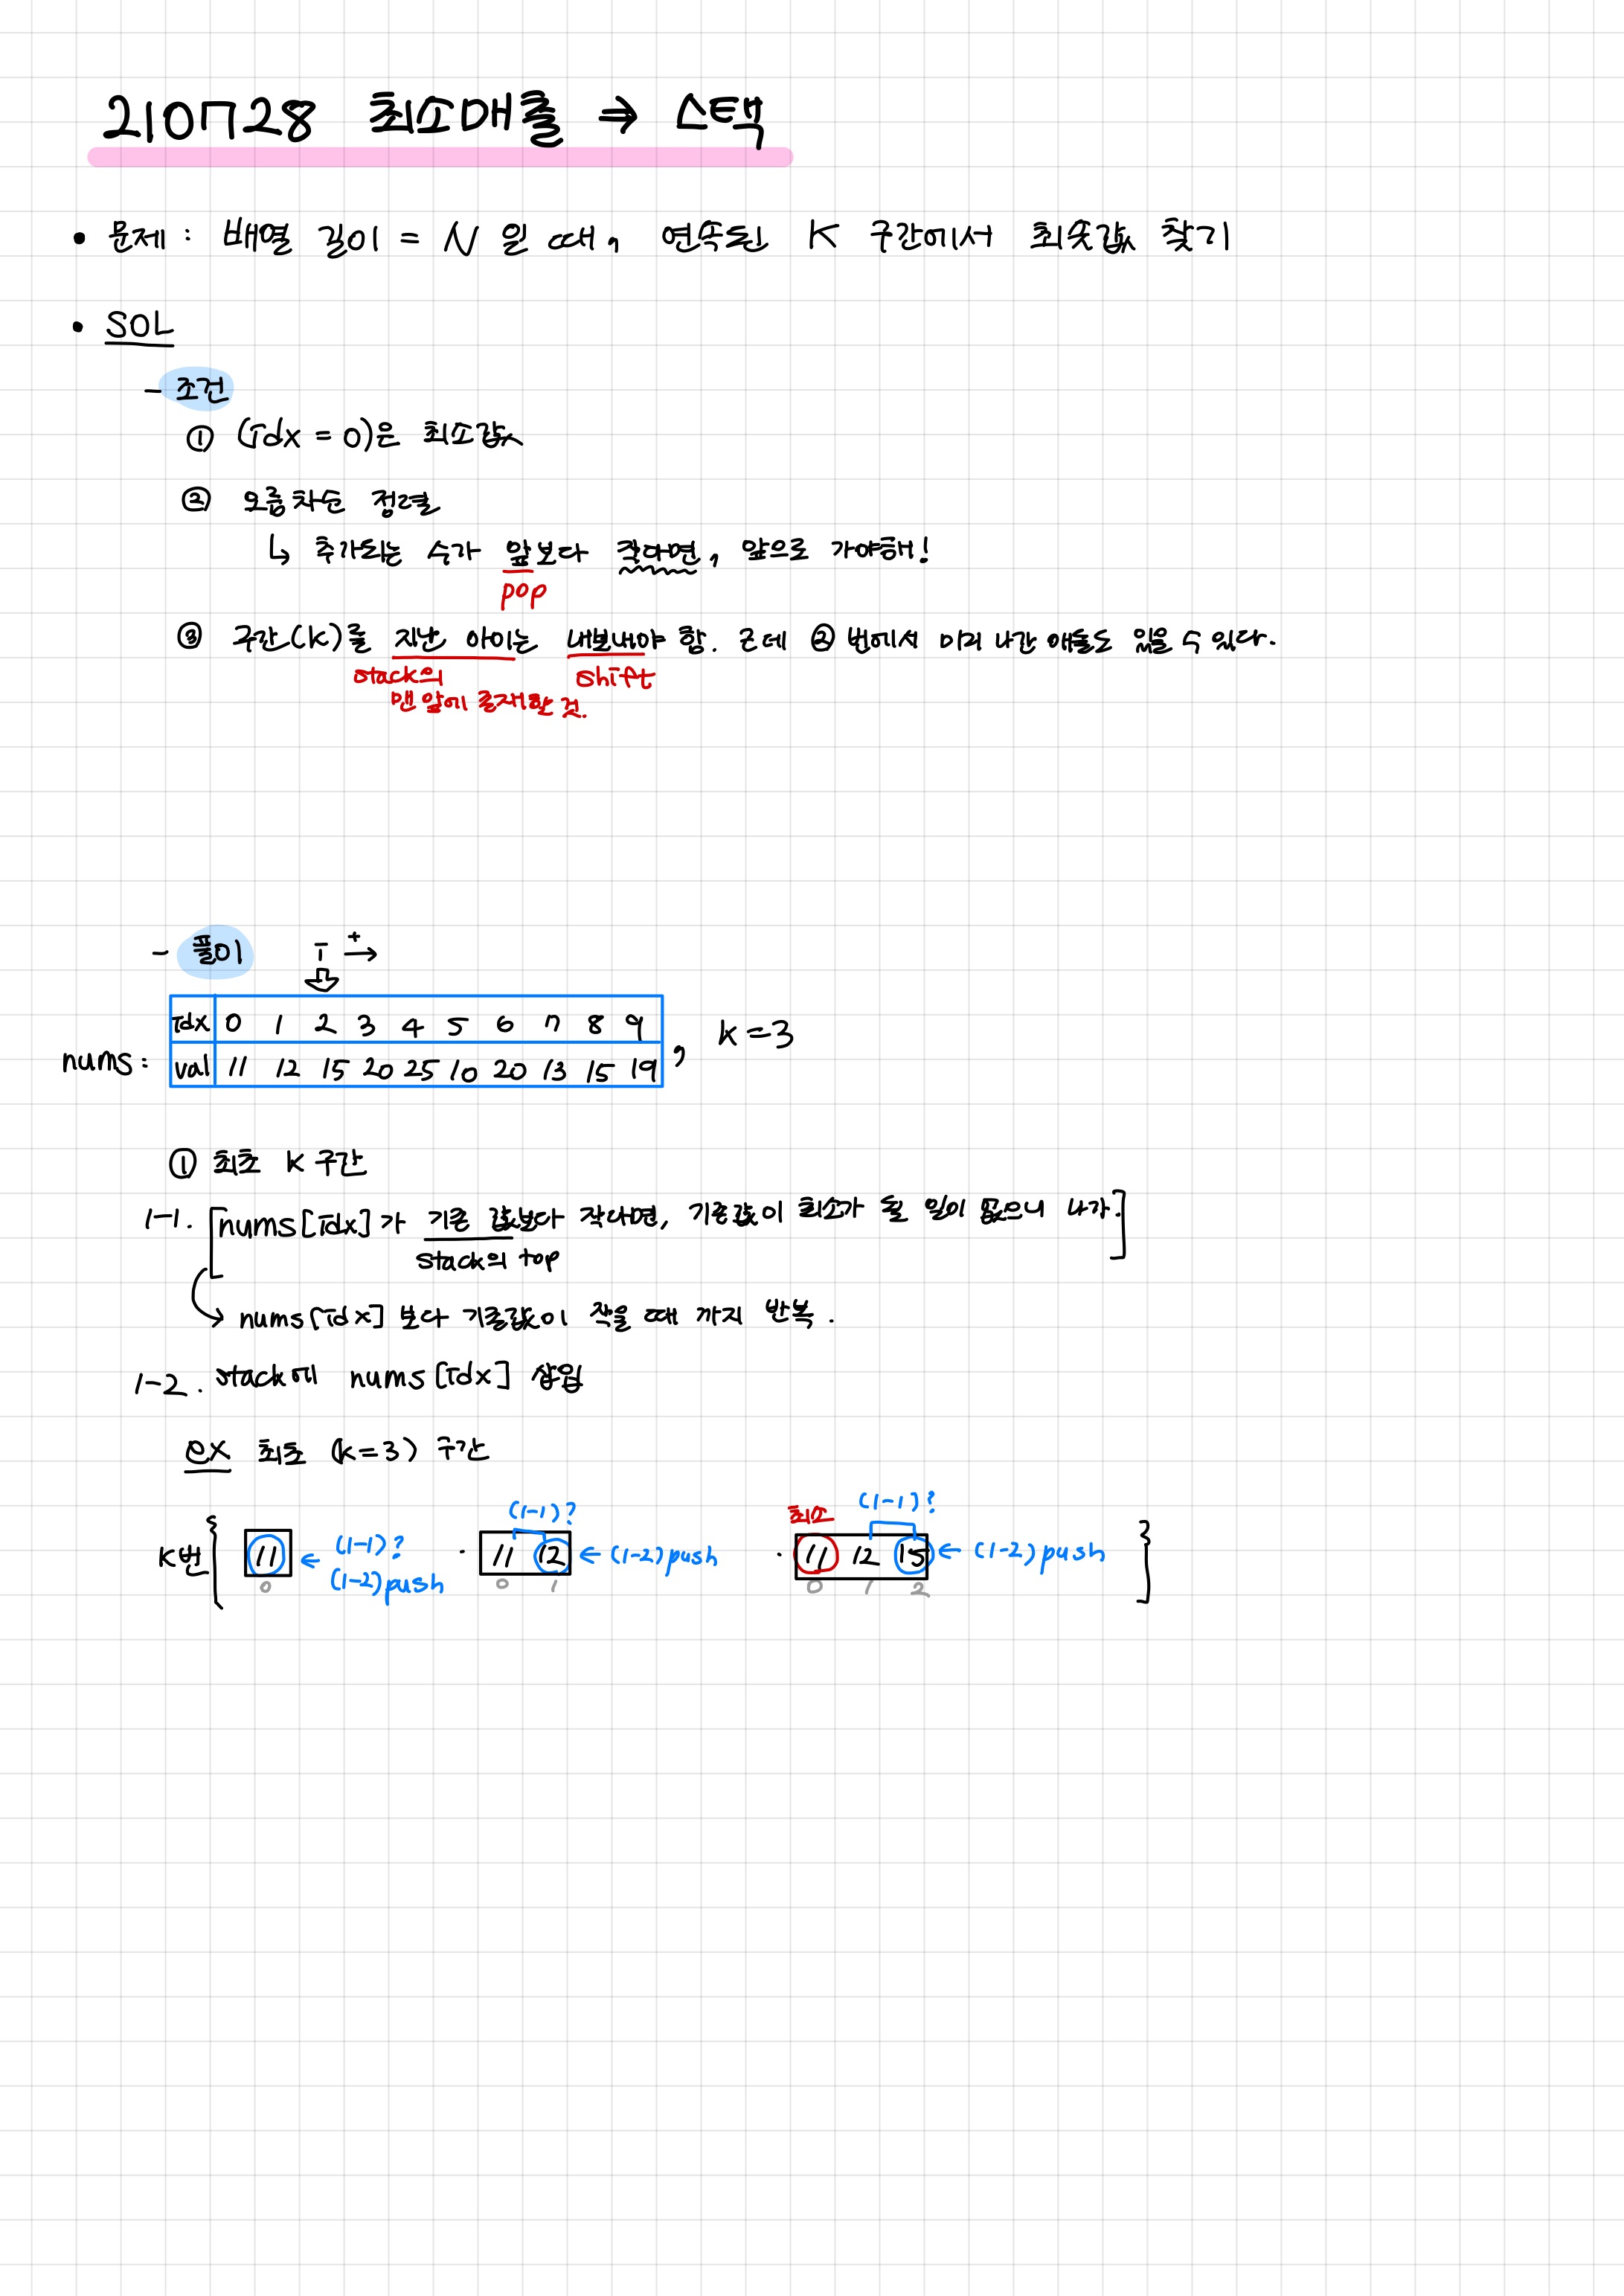 210728 최소매출 → 스택
• 문제 : 배열 길이 = N 일 때, 연속된 K 구간에서 최솟값 찾기
• SOL
- 조건
① (idx = 0)은 최소값
② 오름차순 정렬
↳ 추가되는 수가 앞보다 작다면, 앞으로 가야해!
pop
③ 구간(K)를 지난 아이는 내보내야 함. 근데 ②번에서 미리 나간 애들도 있을 수 있다.
stack의 shift
맨 앞에 존재할 것.
- 풀이 i + →
idx 0 1 2 3 4 5 6 7 8 9
nums: val 11 12 15 20 25 10 20 13 15 19 , K=3
① 최초 K 구간
1-1. [nums[idx]가 기존 값보다 작다면, 기존값이 최소가 될 일이 없으니 나가.]
stack의 top
→ nums[idx] 보다 기존값이 작을 때 까지 반복.
1-2. stack에 nums[idx] 삽입
ex 최초 (k=3) 구간
(1-1)? 최소 (1-1)?
K번 { 11 ← (1-1)? · 11 12 ← (1-2)push · 11 12 15 ← (1-2)push }
0 (1-2)push 0 1 0 1 2